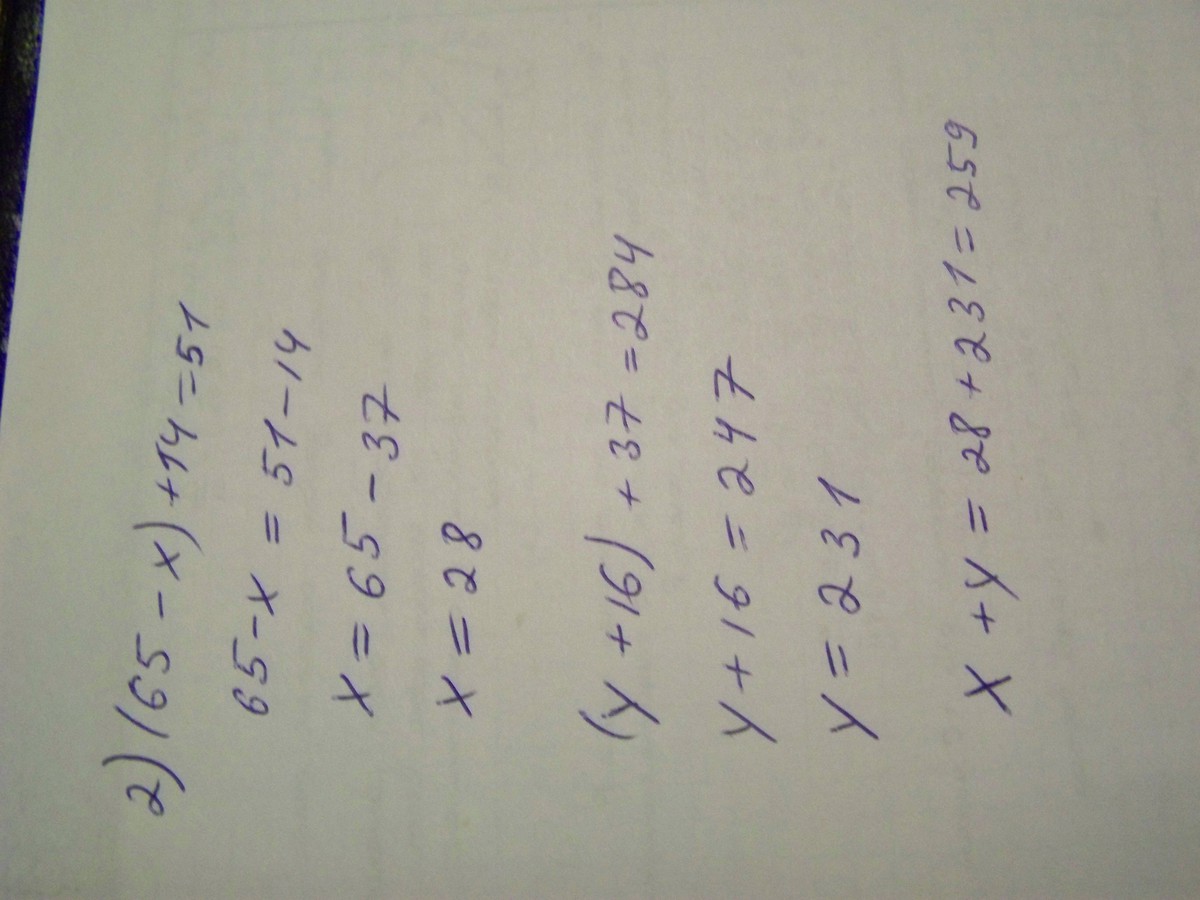 2) (65 - x) + 14 = 51
65 - x = 51 - 14
x = 65 - 37
x = 28
(y + 16) + 37 = 284
y + 16 = 247
y = 231
x + y = 28 + 231 = 259